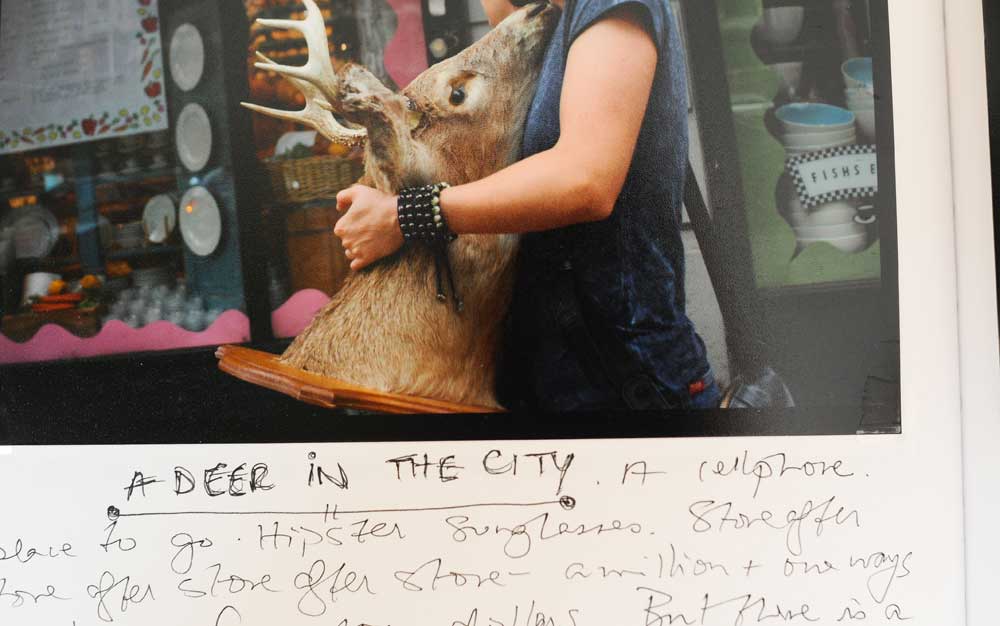 FISHS E
A DEER iN THE CITY. A cellphone.
place to go. Hipster Sunglasses. Store after
store after store after store – a million + one ways
dollars. But there is a